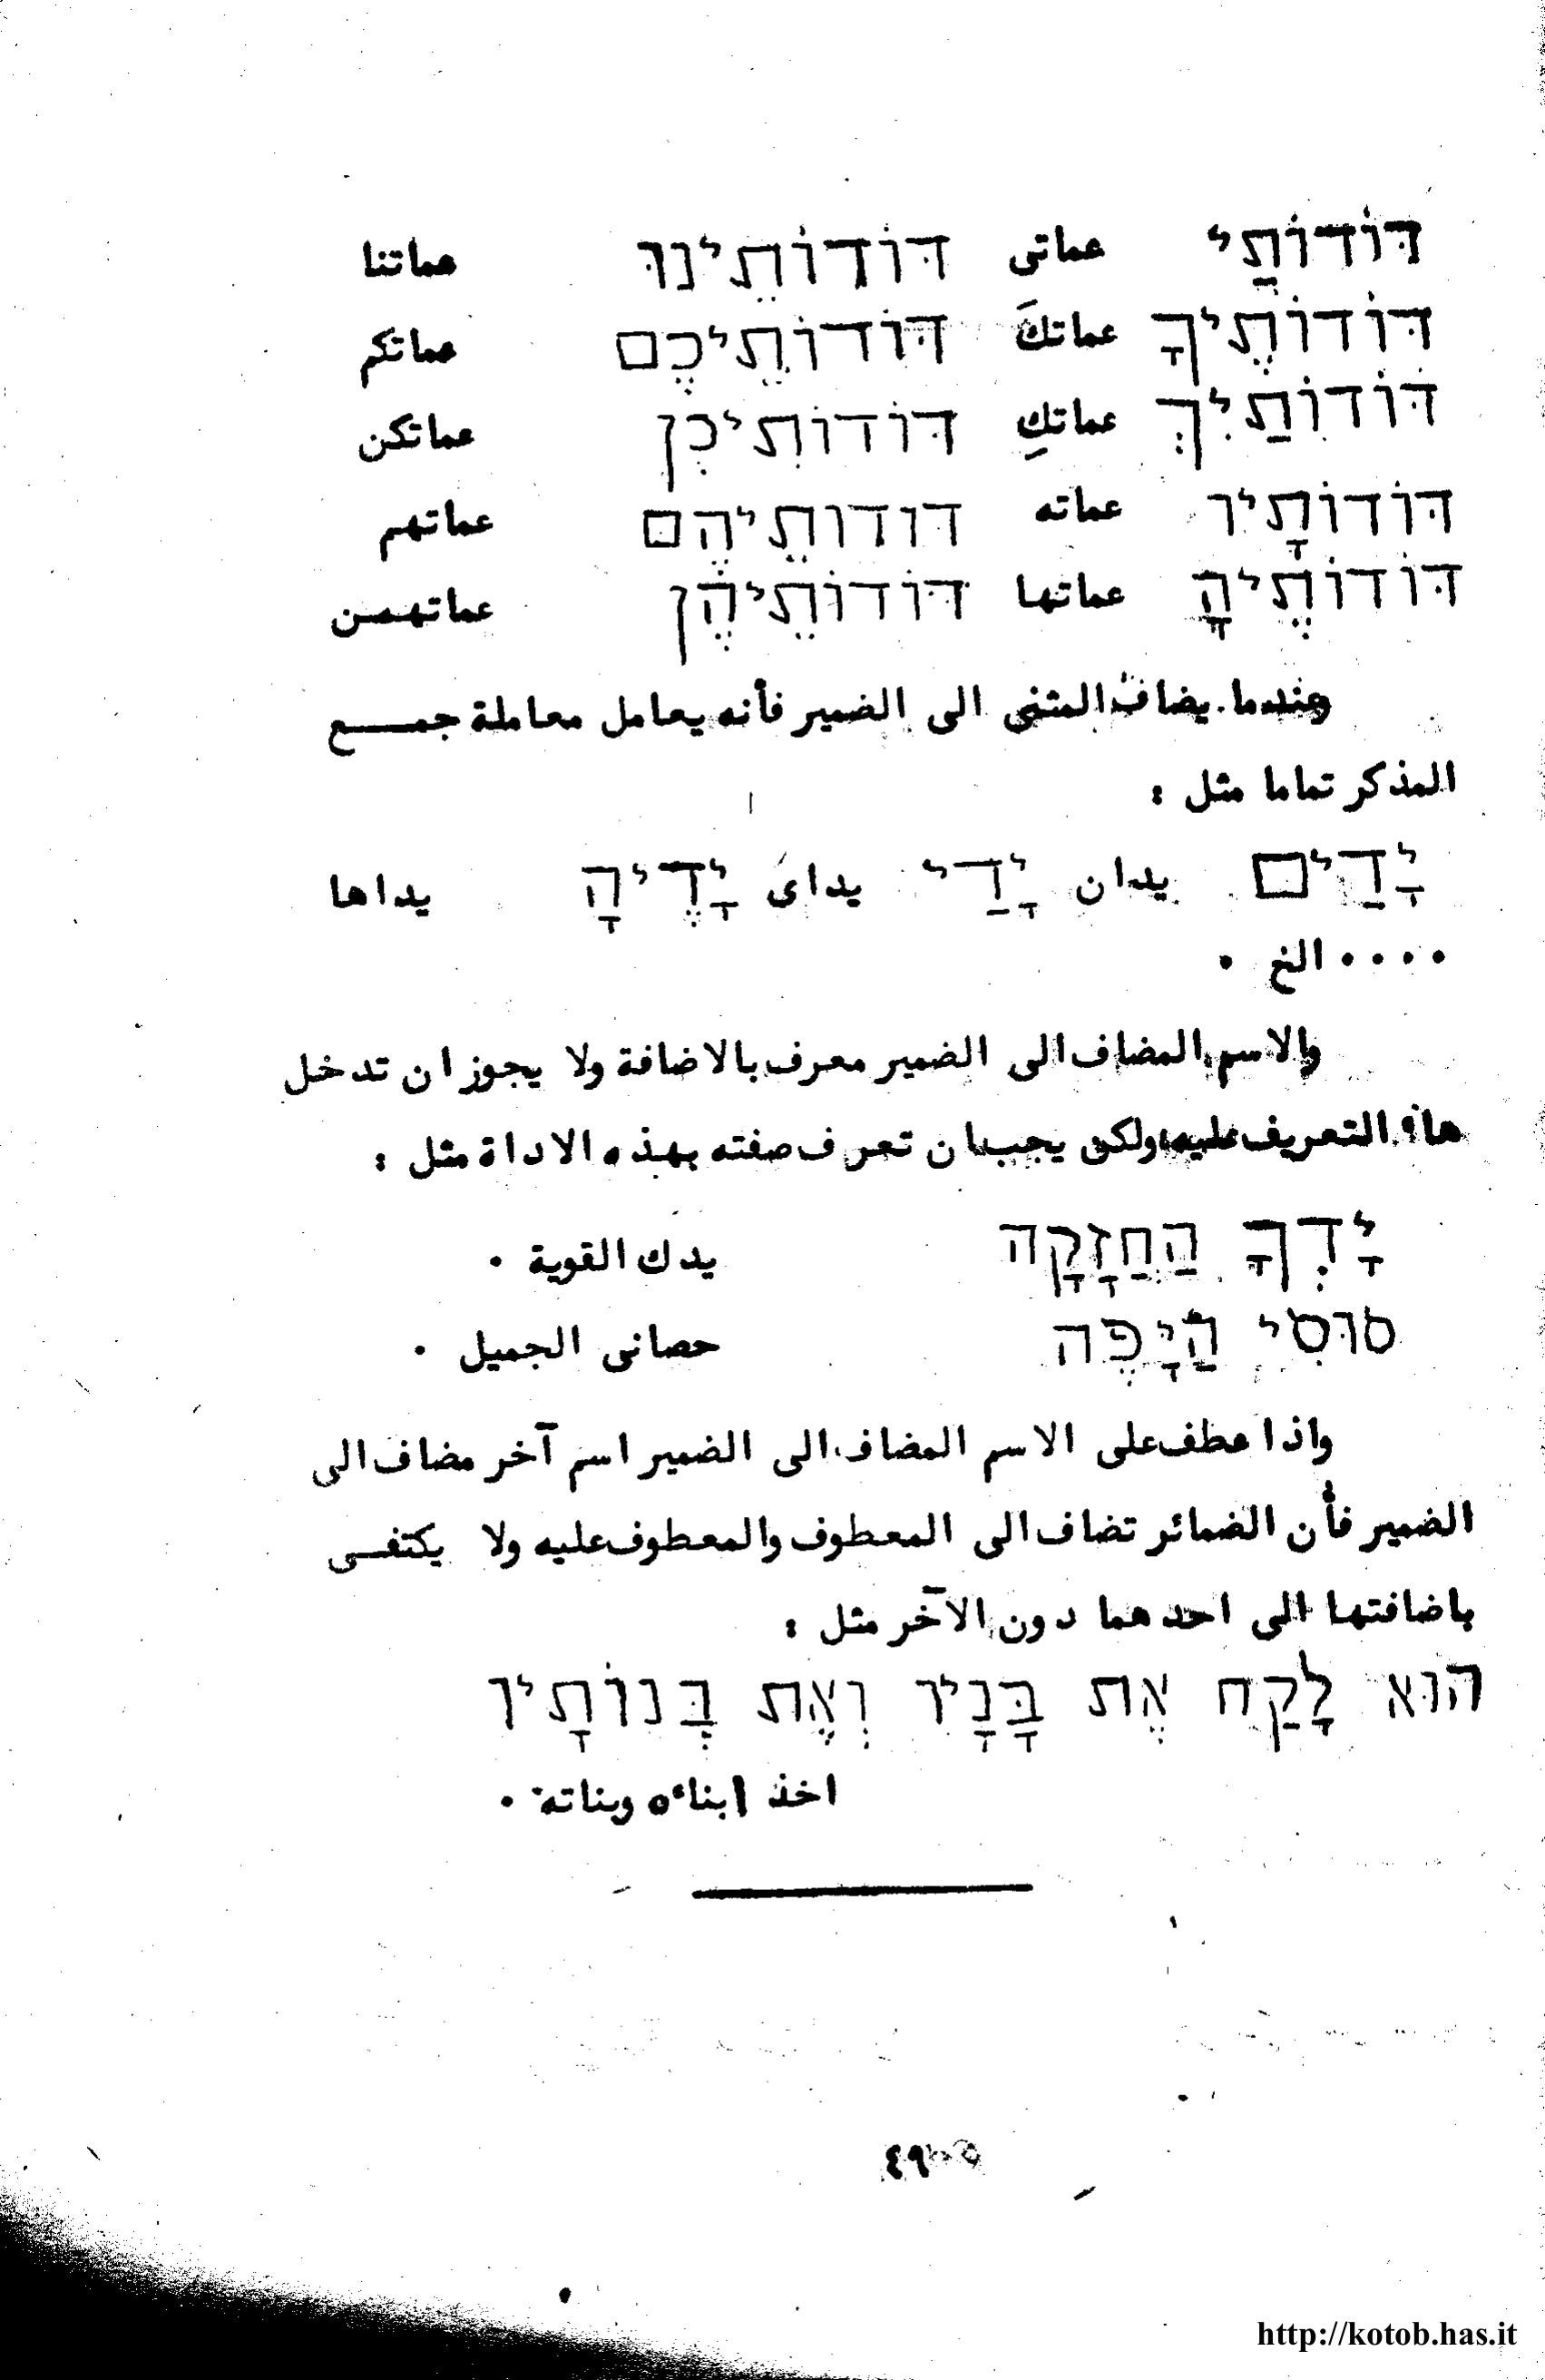 דּוֹדוֹתַי عماتى דּוֹדוֹתֵינוּ عماتنا
דּוֹדוֹתֶיךָ عماتكَ דּוֹדוֹתֵיכֶם عماتكم
דּוֹדוֹתַיִךְ عماتكِ דּוֹדוֹתיכן عماتكن
דּוֹדוֹתָיו عماته דודותֵיהֶם عماتهم
דּוֹדוֹתֶיהָ عماتها דּוֹדוֹתֵיהֶן عماتهمن
وعندما يضاف المثنى الى الضمير فأنه يعامل معاملة جمع
المذكر تماما مثل :
יָדַים يدان יָדַי يداى יָדֶיהָ يداها
.... الخ .
والاسم المضاف الى الضمير معرف بالاضافة ولا يجوز ان تدخل
هاء التعريف عليه ولكن يجب ان تعرف صفته بهذه الاداة مثل :
יָדְךָ הַחֲזָקָה يدك القوية .
סוּסִי הַיָּפֶה حصانى الجميل .
واذا عطف على الاسم المضاف الى الضمير اسم آخر مضاف الى
الضمير فأن الضمائر تضاف الى المعطوف والمعطوف عليه ولا يكتفى
باضافتها الى احدهما دون الآخر مثل :
הוּא לָקַח אֶת בָּנָיו וְאֶת בְּנוֹתָיו
اخذ ابناءه وبناته .
٤٩
http://kotob.has.it